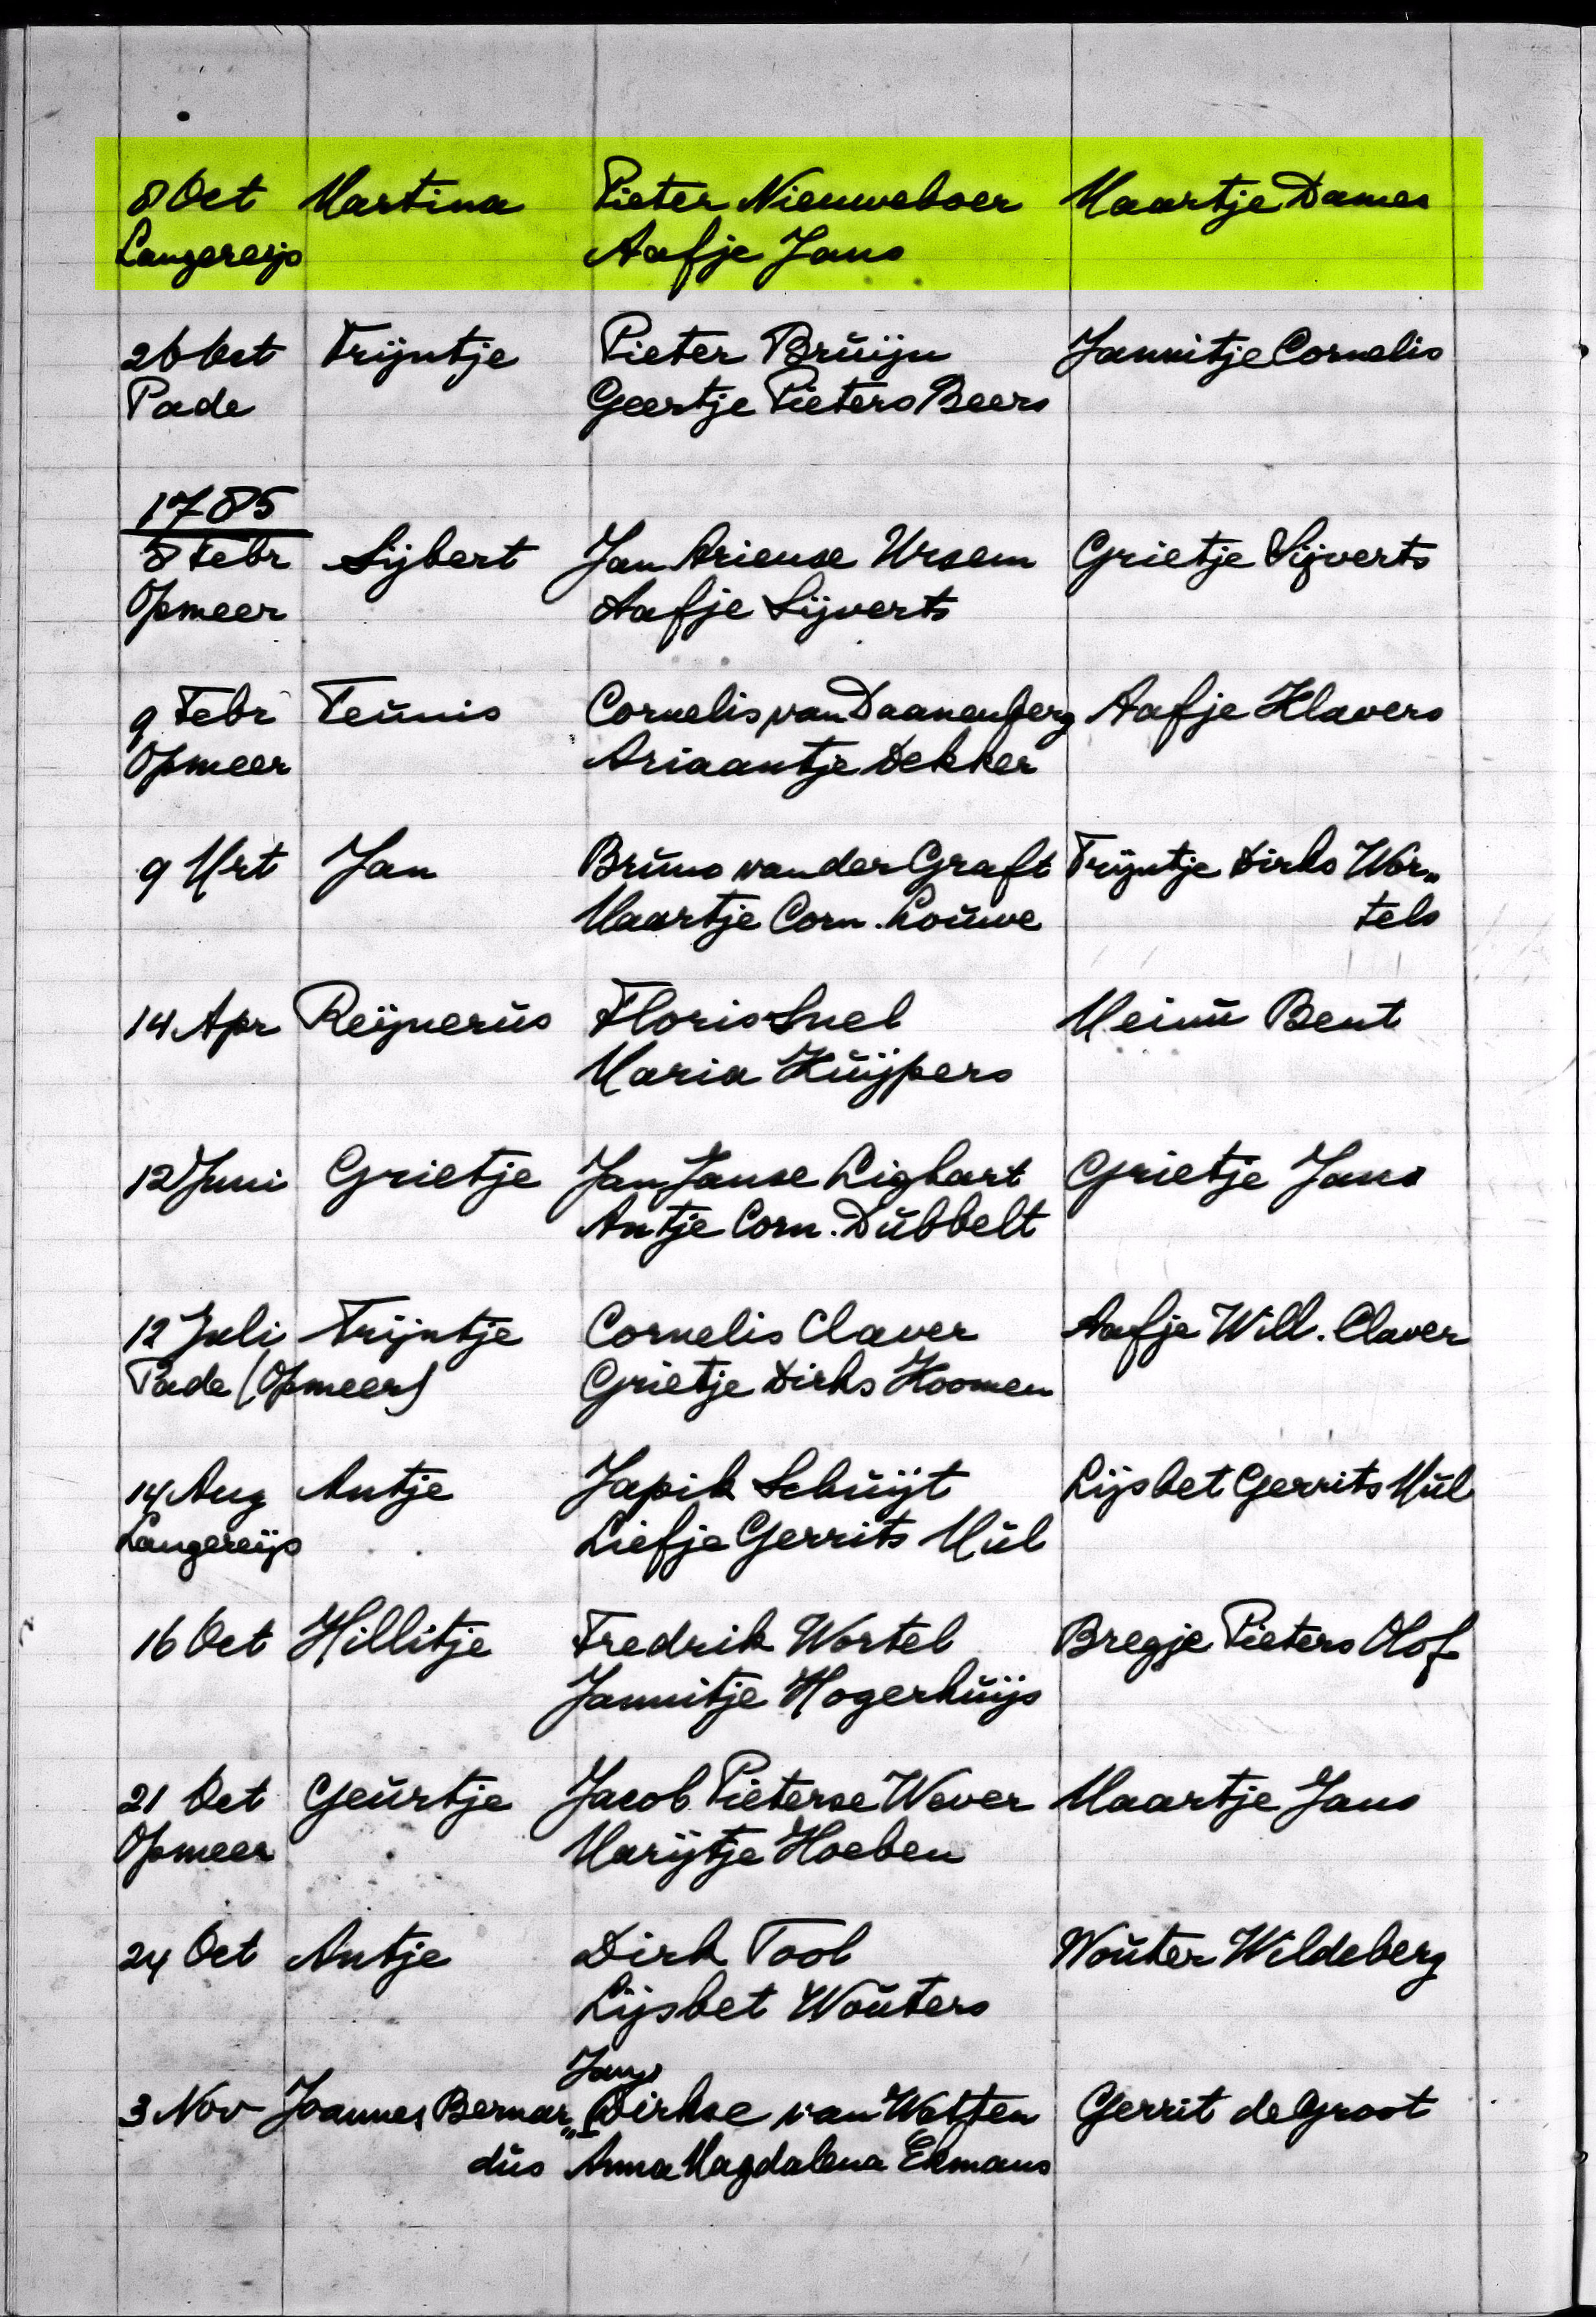 8 Oct Martina Pieter Nieuweboer Maartje Dames
Langereijs Aafje Jans
26 Oct Trijntje Pieter Bruijn Jannitje Cornelis
Pade Geertje Pieters Beers
1785
8 Febr Sijbert Jan Ariense Ursem Grietje Sijverts
Opmeer Aafje Sijverts
9 Febr Teunis Cornelis van Daanenberg Aafje Klavers
Opmeer Ariaantje Dekker
9 Mrt Jan Bruno van der Graft Trijntje Dirks Wor„
Maartje Corn. Louwe tels
14 Apr Reijnerus Floris Snel Meinu Bent
Maria Kuijpers
12 Juni Grietje Jan Janse Lighart Grietje Jans
Antje Corn. Dubbelt
12 Juli Trijntje Cornelis Claver Aafje Will. Claver
Pade (Opmeer) Grietje Dirks Koomen
14 Aug Antje Japik Schuijt Lijsbet Gerrits Mul
Langereijs Liefje Gerrits Mul
16 Oct Hillitje Fredrik Wortel Bregje Pieters Olof
Jannitje Hogerhuijs
21 Oct Geurtje Jacob Pieterse Wever Maartje Jans
Opmeer Marijtje Hoeben
24 Oct Antje Dirk Tool Wouter Wildeberg
Lijsbet Wouters
Jans
3 Nov Joannes Bernar„ Dirkse van Watten Gerrit de Groot
dus Anna Magdalena Ekmans